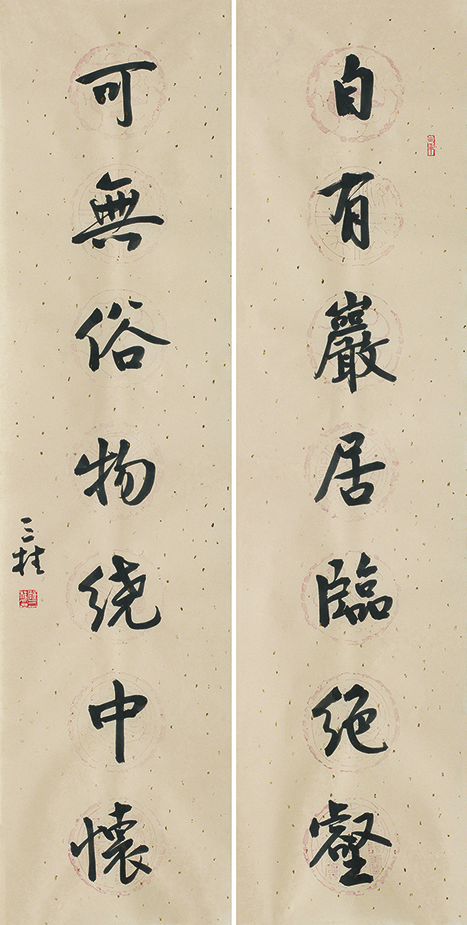 自有巖居臨绝壑
可無俗物绕中懷
三桂